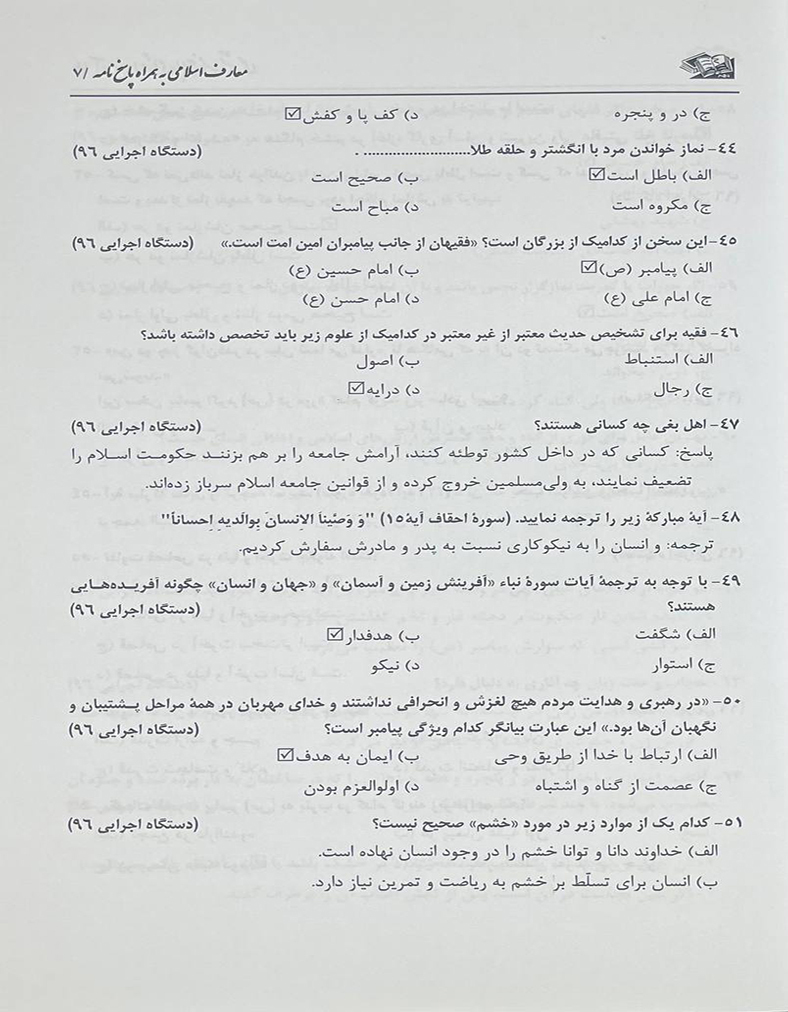 معارف اسلامی به همراه پاسخ نامه /۷
ج) در و پنجره د) کف پا و کفش☑
۴۴- نماز خواندن مرد با انگشتر و حلقه طلا......................... . (دستگاه اجرایی ۹۶)
الف) باطل است☑ ب) صحیح است
ج) مکروه است د) مباح است
۴۵-این سخن از کدامیک از بزرگان است؟ «فقیهان از جانب پیامبران امین امت است.» (دستگاه اجرایی ۹۶)
الف) پیامبر (ص)☑ ب) امام حسین (ع)
ج) امام علی (ع) د) امام حسن (ع)
۴۶- فقیه برای تشخیص حدیث معتبر از غیر معتبر در کدامیک از علوم زیر باید تخصص داشته باشد؟
الف) استنباط ب) اصول
ج) رجال د) درایه☑
۴۷- اهل بغی چه کسانی هستند؟ (دستگاه اجرایی ۹۶)
پاسخ: کسانی که در داخل کشور توطئه کنند، آرامش جامعه را بر هم بزنند حکومت اسلام را
تضعیف نمایند، به ولی‌مسلمین خروج کرده و از قوانین جامعه اسلام سرباز زده‌اند.
۴۸- آیهٔ مبارکهٔ زیر را ترجمه نمایید. (سورهٔ احقاف آیهٔ ۱۵) "وَ وَصَّیناَ الاِنسانَ بِوالَدیهِ اِحساناً"
ترجمه: و انسان را به نیکوکاری نسبت به پدر و مادرش سفارش کردیم.
۴۹- با توجه به ترجمهٔ آیات سورهٔ نباء «آفرینش زمین و آسمان» و «جهان و انسان» چگونه آفریده‌هایی
هستند؟ (دستگاه اجرایی ۹۶)
الف) شگفت ب) هدفدار☑
ج) استوار د) نیکو
۵۰- «در رهبری و هدایت مردم هیچ لغزش و انحرافی نداشتند و خدای مهربان در همهٔ مراحل پشتیبان و
نگهبان آن‌ها بود.» این عبارت بیانگر کدام ویژگی پیامبر است؟ (دستگاه اجرایی ۹۶)
الف) ارتباط با خدا از طریق وحی ب) ایمان به هدف☑
ج) عصمت از گناه و اشتباه د) اولوالعزم بودن
۵۱- کدام یک از موارد زیر در مورد «خشم» صحیح نیست؟ (دستگاه اجرایی ۹۶)
الف) خداوند دانا و توانا خشم را در وجود انسان نهاده است.
ب) انسان برای تسلّط بر خشم به ریاضت و تمرین نیاز دارد.